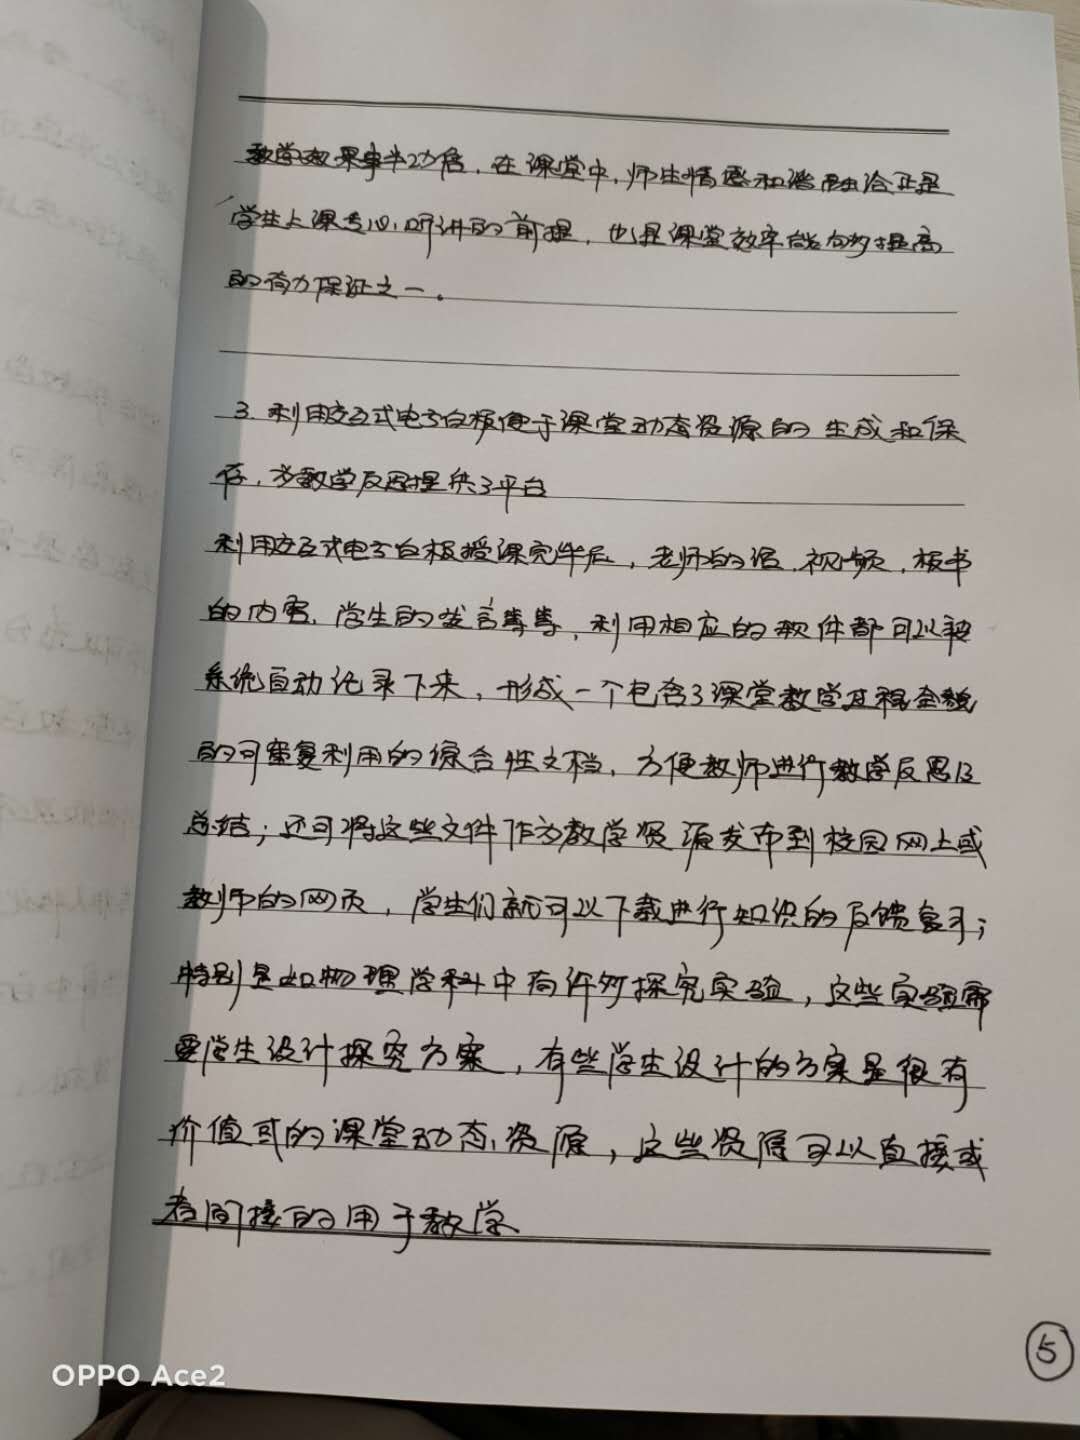 教学效果事半功倍，在课堂中，师生情感和谐融洽正是
学生上课专心听讲的前提，也是课堂效率能够提高
的有力保证之一。
3. 利用交互式电子白板便于课堂动态资源的生成和保
存，为教学反思提供了平台
利用交互式电子白板授课完毕后，老师的话、视频，板书
的内容、学生的发言等等，利用相应的软件都可以被
系统自动记录下来，形成一个包含了课堂教学过程全貌
的可重复利用的综合性文档，方便教师进行教学反思及
总结；还可将这些文件作为教学资源发布到校园网上或
教师的网页，学生们就可以下载进行知识的反馈复习；
特别是如物理学科中有许多探究实验，这些实验需
要学生设计探究方案，有些学生设计的方案是很有
价值或的课堂动态资源，这些资源可以直接或
者间接的用于教学
5
OPPO Ace2